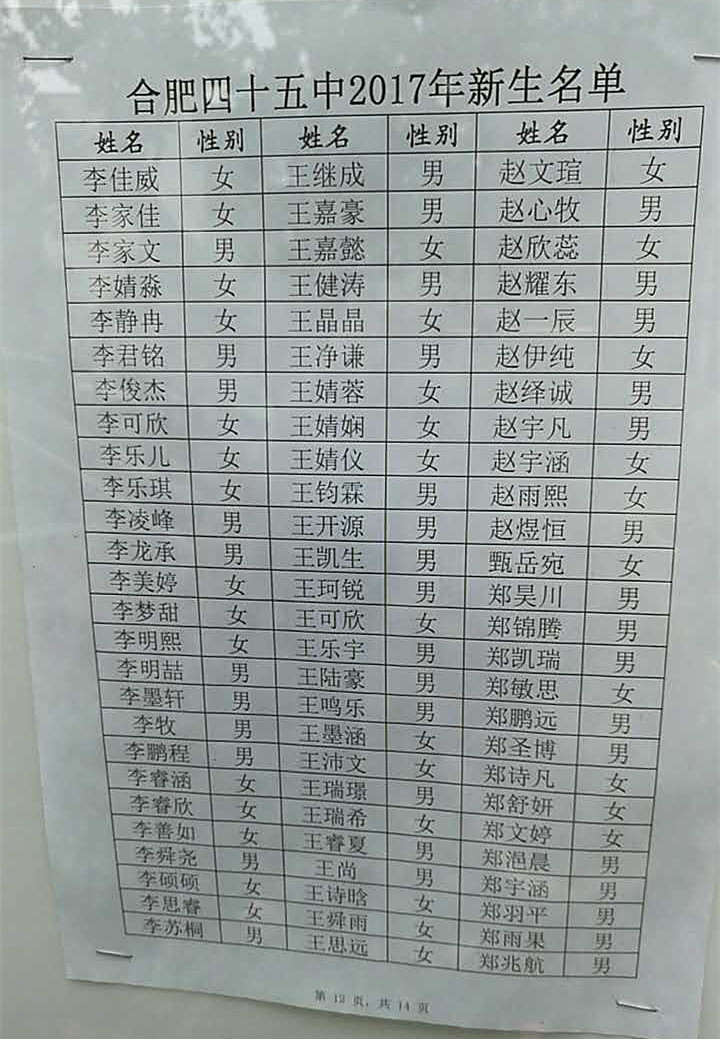 合肥四十五中2017年新生名单
姓名 性别 姓名 性别 姓名 性别
李佳威 女 王继成 男 赵文瑄 女
李家佳 女 王嘉豪 男 赵心牧 男
李家文 男 王嘉懿 女 赵欣蕊 女
李婧淼 女 王健涛 男 赵耀东 男
李静冉 女 王晶晶 女 赵一辰 男
李君铭 男 王净谦 男 赵伊纯 女
李俊杰 男 王婧蓉 女 赵绎诚 男
李可欣 女 王婧娴 女 赵宇凡 男
李乐儿 女 王婧仪 女 赵宇涵 女
李乐琪 女 王钧霖 男 赵雨熙 女
李凌峰 男 王开源 男 赵煜恒 男
李龙承 男 王凯生 男 甄岳宛 女
李美婷 女 王珂锐 男 郑昊川 男
李梦甜 女 王可欣 女 郑锦腾 男
李明熙 女 王乐宇 男 郑凯瑞 男
李明喆 男 王陆豪 男 郑敏思 女
李墨轩 男 王鸣乐 男 郑鹏远 男
李牧 男 王墨涵 女 郑圣博 男
李鹏程 男 王沛文 女 郑诗凡 女
李睿涵 女 王瑞璟 男 郑舒妍 女
李睿欣 女 王瑞希 女 郑文婷 女
李善如 女 王睿夏 男 郑浥晨 男
李舜尧 男 王尚 男 郑宇涵 男
李硕硕 女 王诗晗 女 郑羽平 男
李思睿 女 王舜雨 女 郑雨果 男
李苏桐 男 王思远 女 郑兆航 男
第 12 页，共 14 页